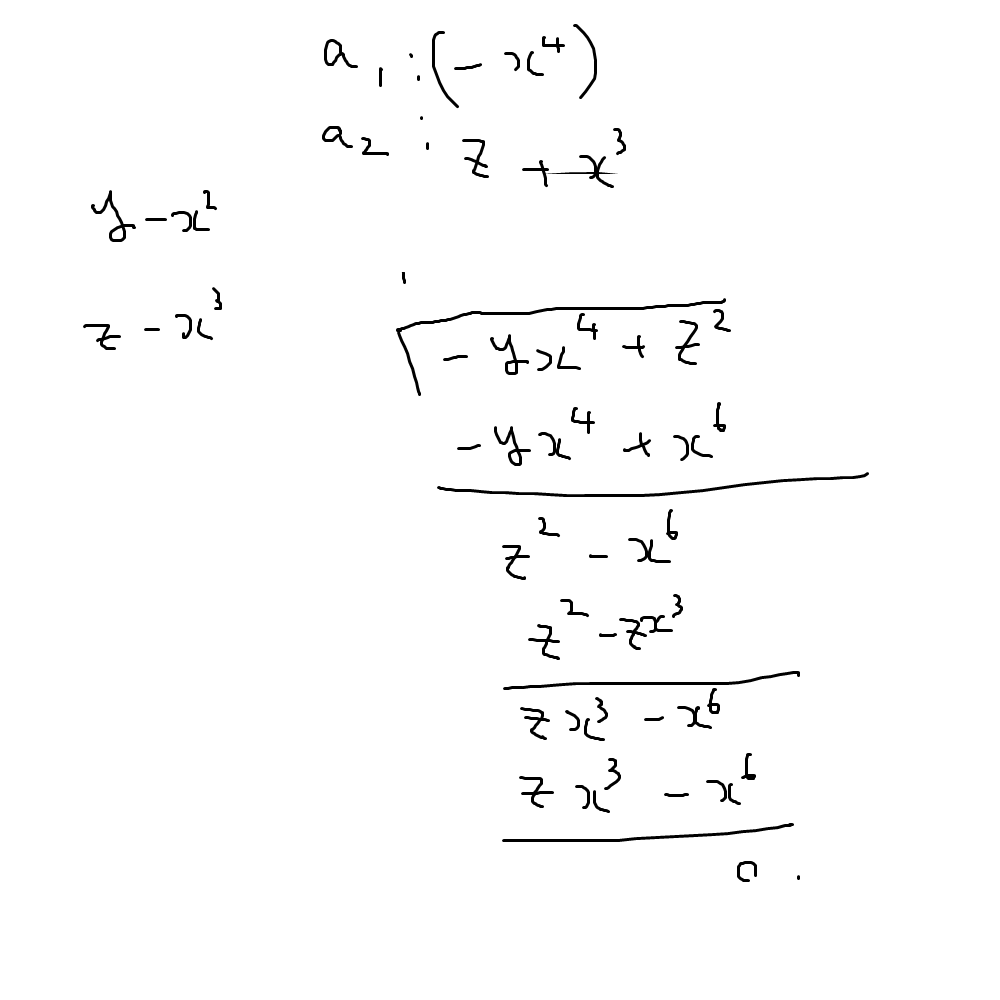 a₁ : (- x⁴)
a₂ : z + x³
y - x²
z - x³
- yx⁴ + z²
- yx⁴ + x⁶
z² - x⁶
z² - zx³
zx³ - x⁶
zx³ - x⁶
0 .